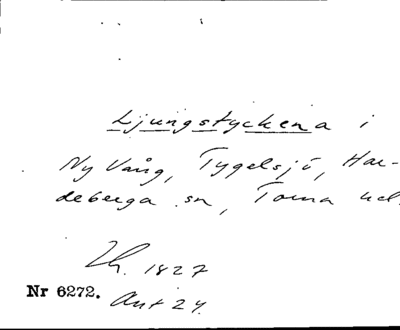 Ljungstyckena i
Ny Vång, Tygelsjö, Har-
deberga sn, Torna
1827
Nr 6272.